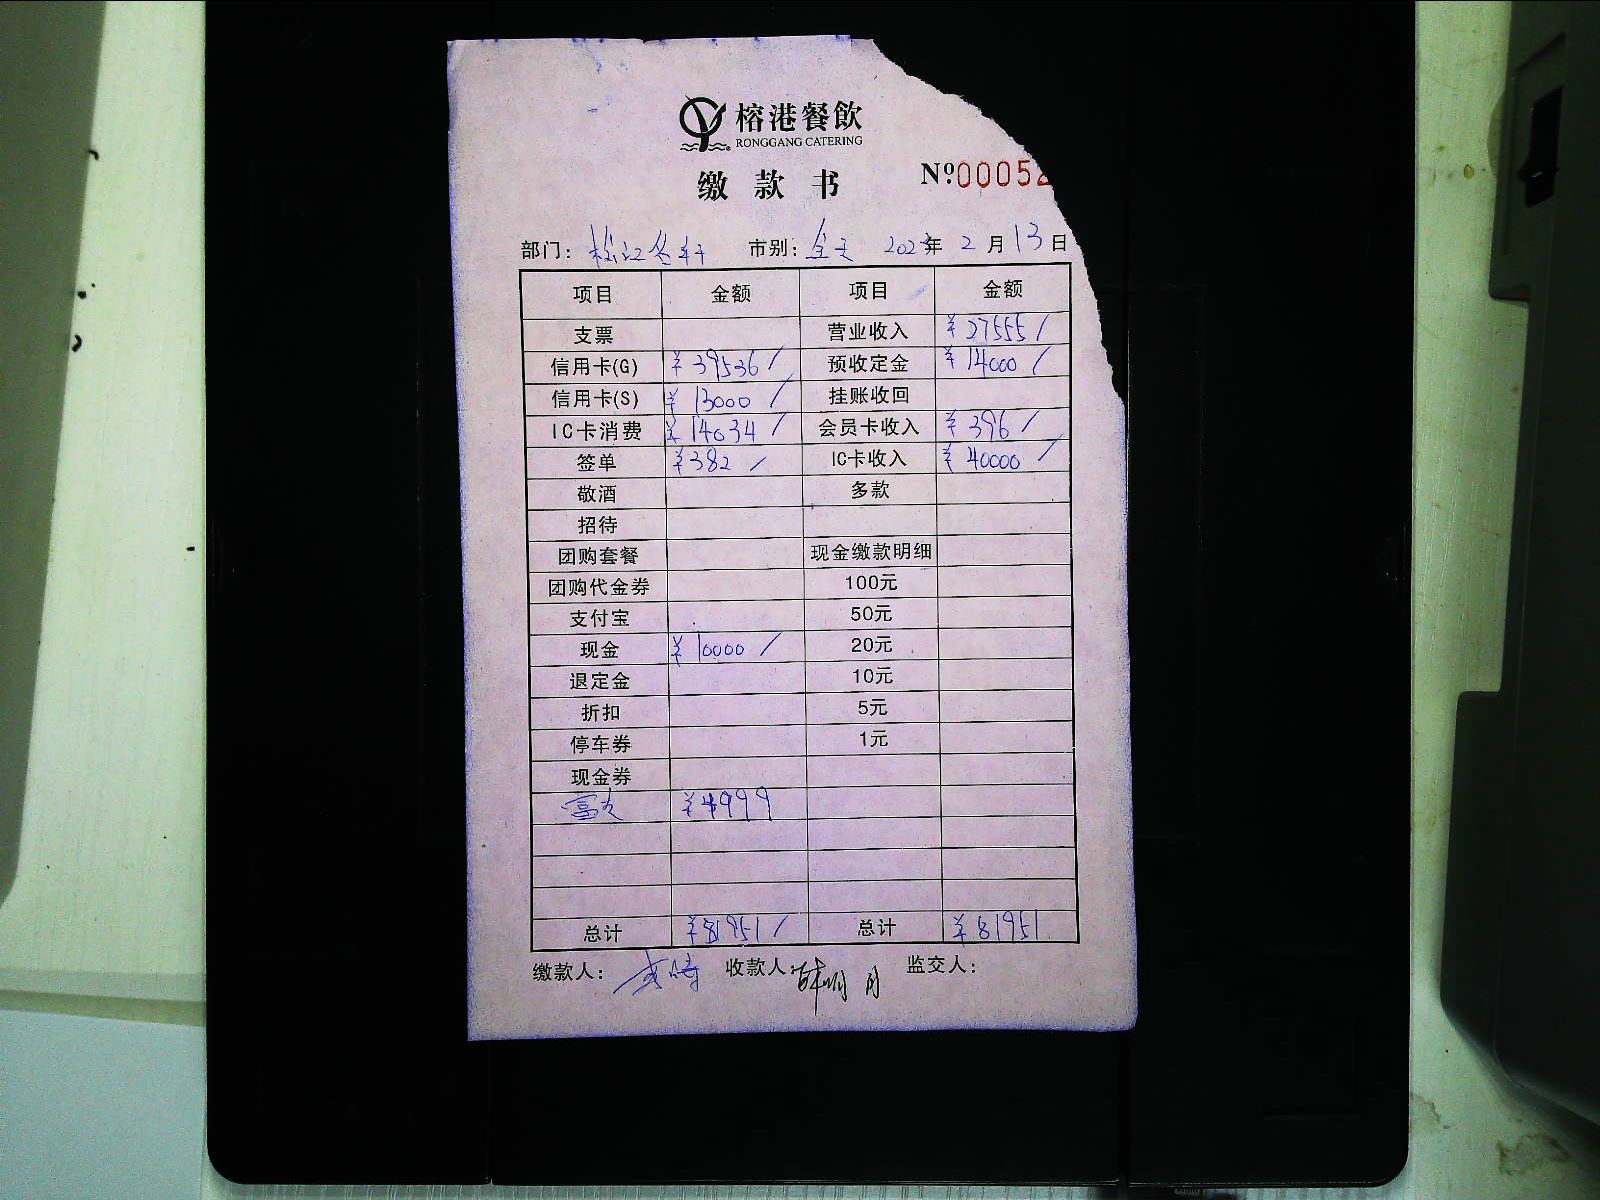 榕港餐飲
RONGGANG CATERING
缴款书 Nº00052
部门: 松江名轩 市别: 全天 2023年 2月13日
项目 金额 项目 金额
支票 营业收入 ¥27555/
信用卡(G) ¥39536/ 预收定金 ¥14000/
信用卡(S) ¥13000/ 挂账收回
IC卡消费 ¥14034/ 会员卡收入 ¥396/
签单 ¥382/ IC卡收入 ¥40000/
敬酒 多款
招待
团购套餐 现金缴款明细
团购代金券 100元
支付宝 50元
现金 ¥10000/ 20元
退定金 10元
折扣 5元
停车券 1元
现金券
¥4999
总计 ¥81951/ 总计 ¥81951
缴款人: 收款人: 监交人: